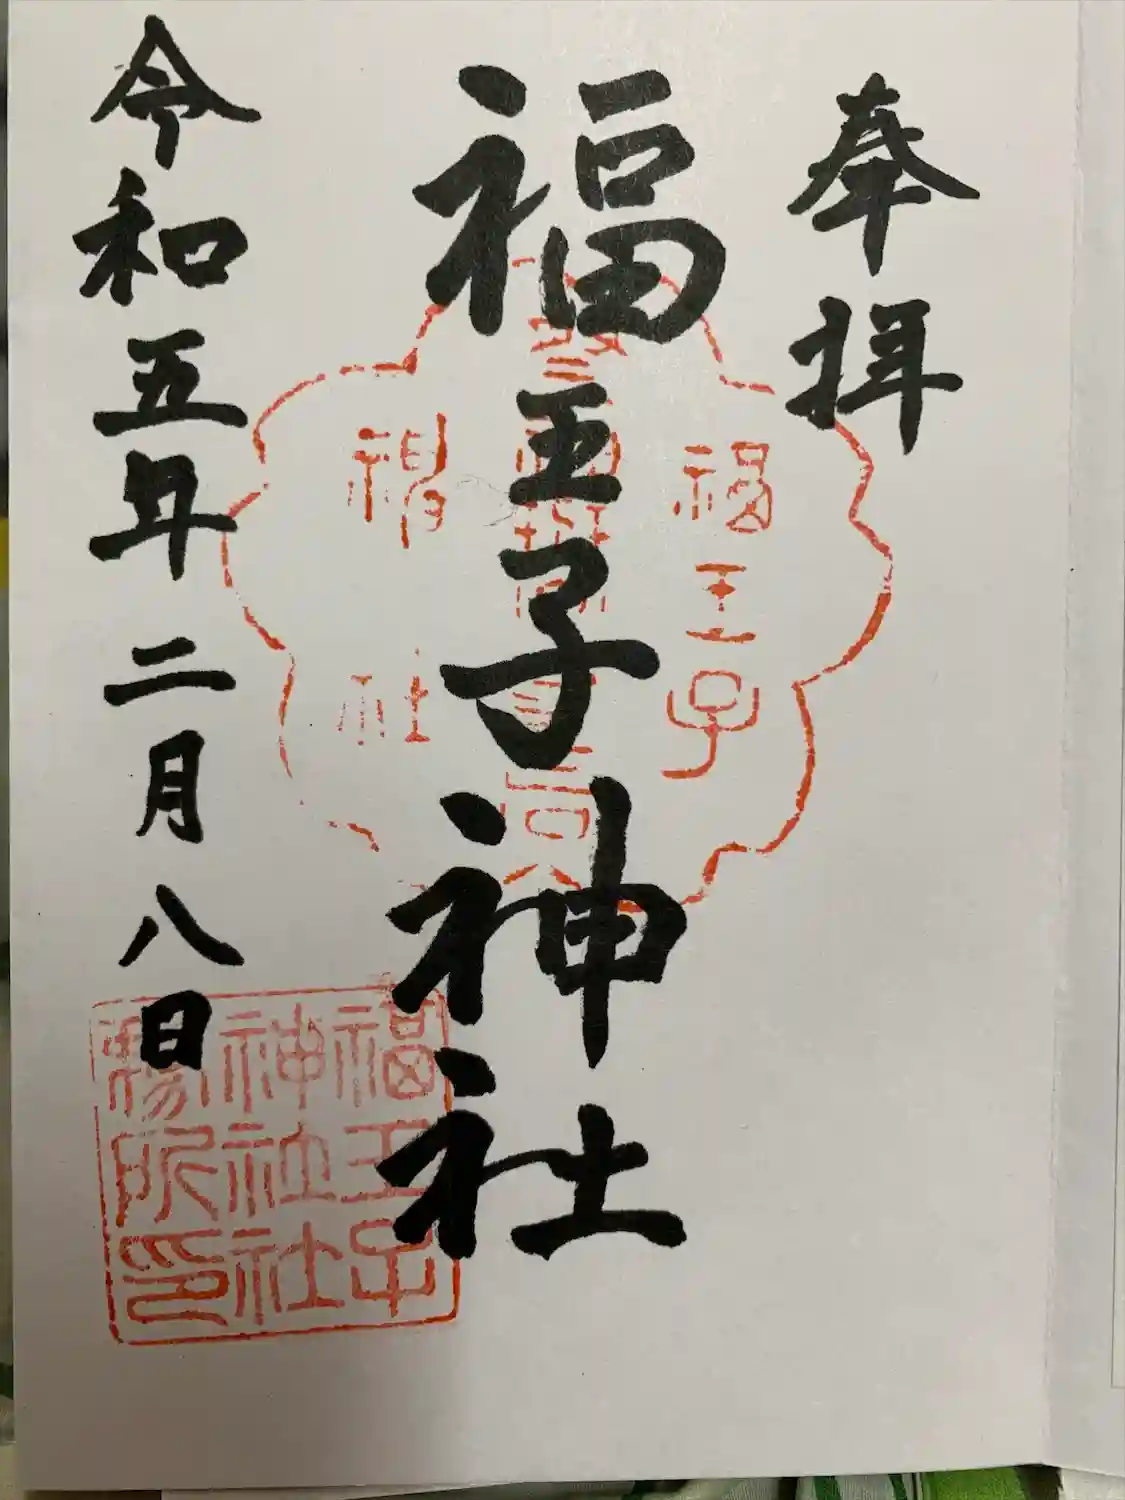 奉拝
福王子神社
令和五年二月八日
福王子
神社
福王子
神社社
務所印